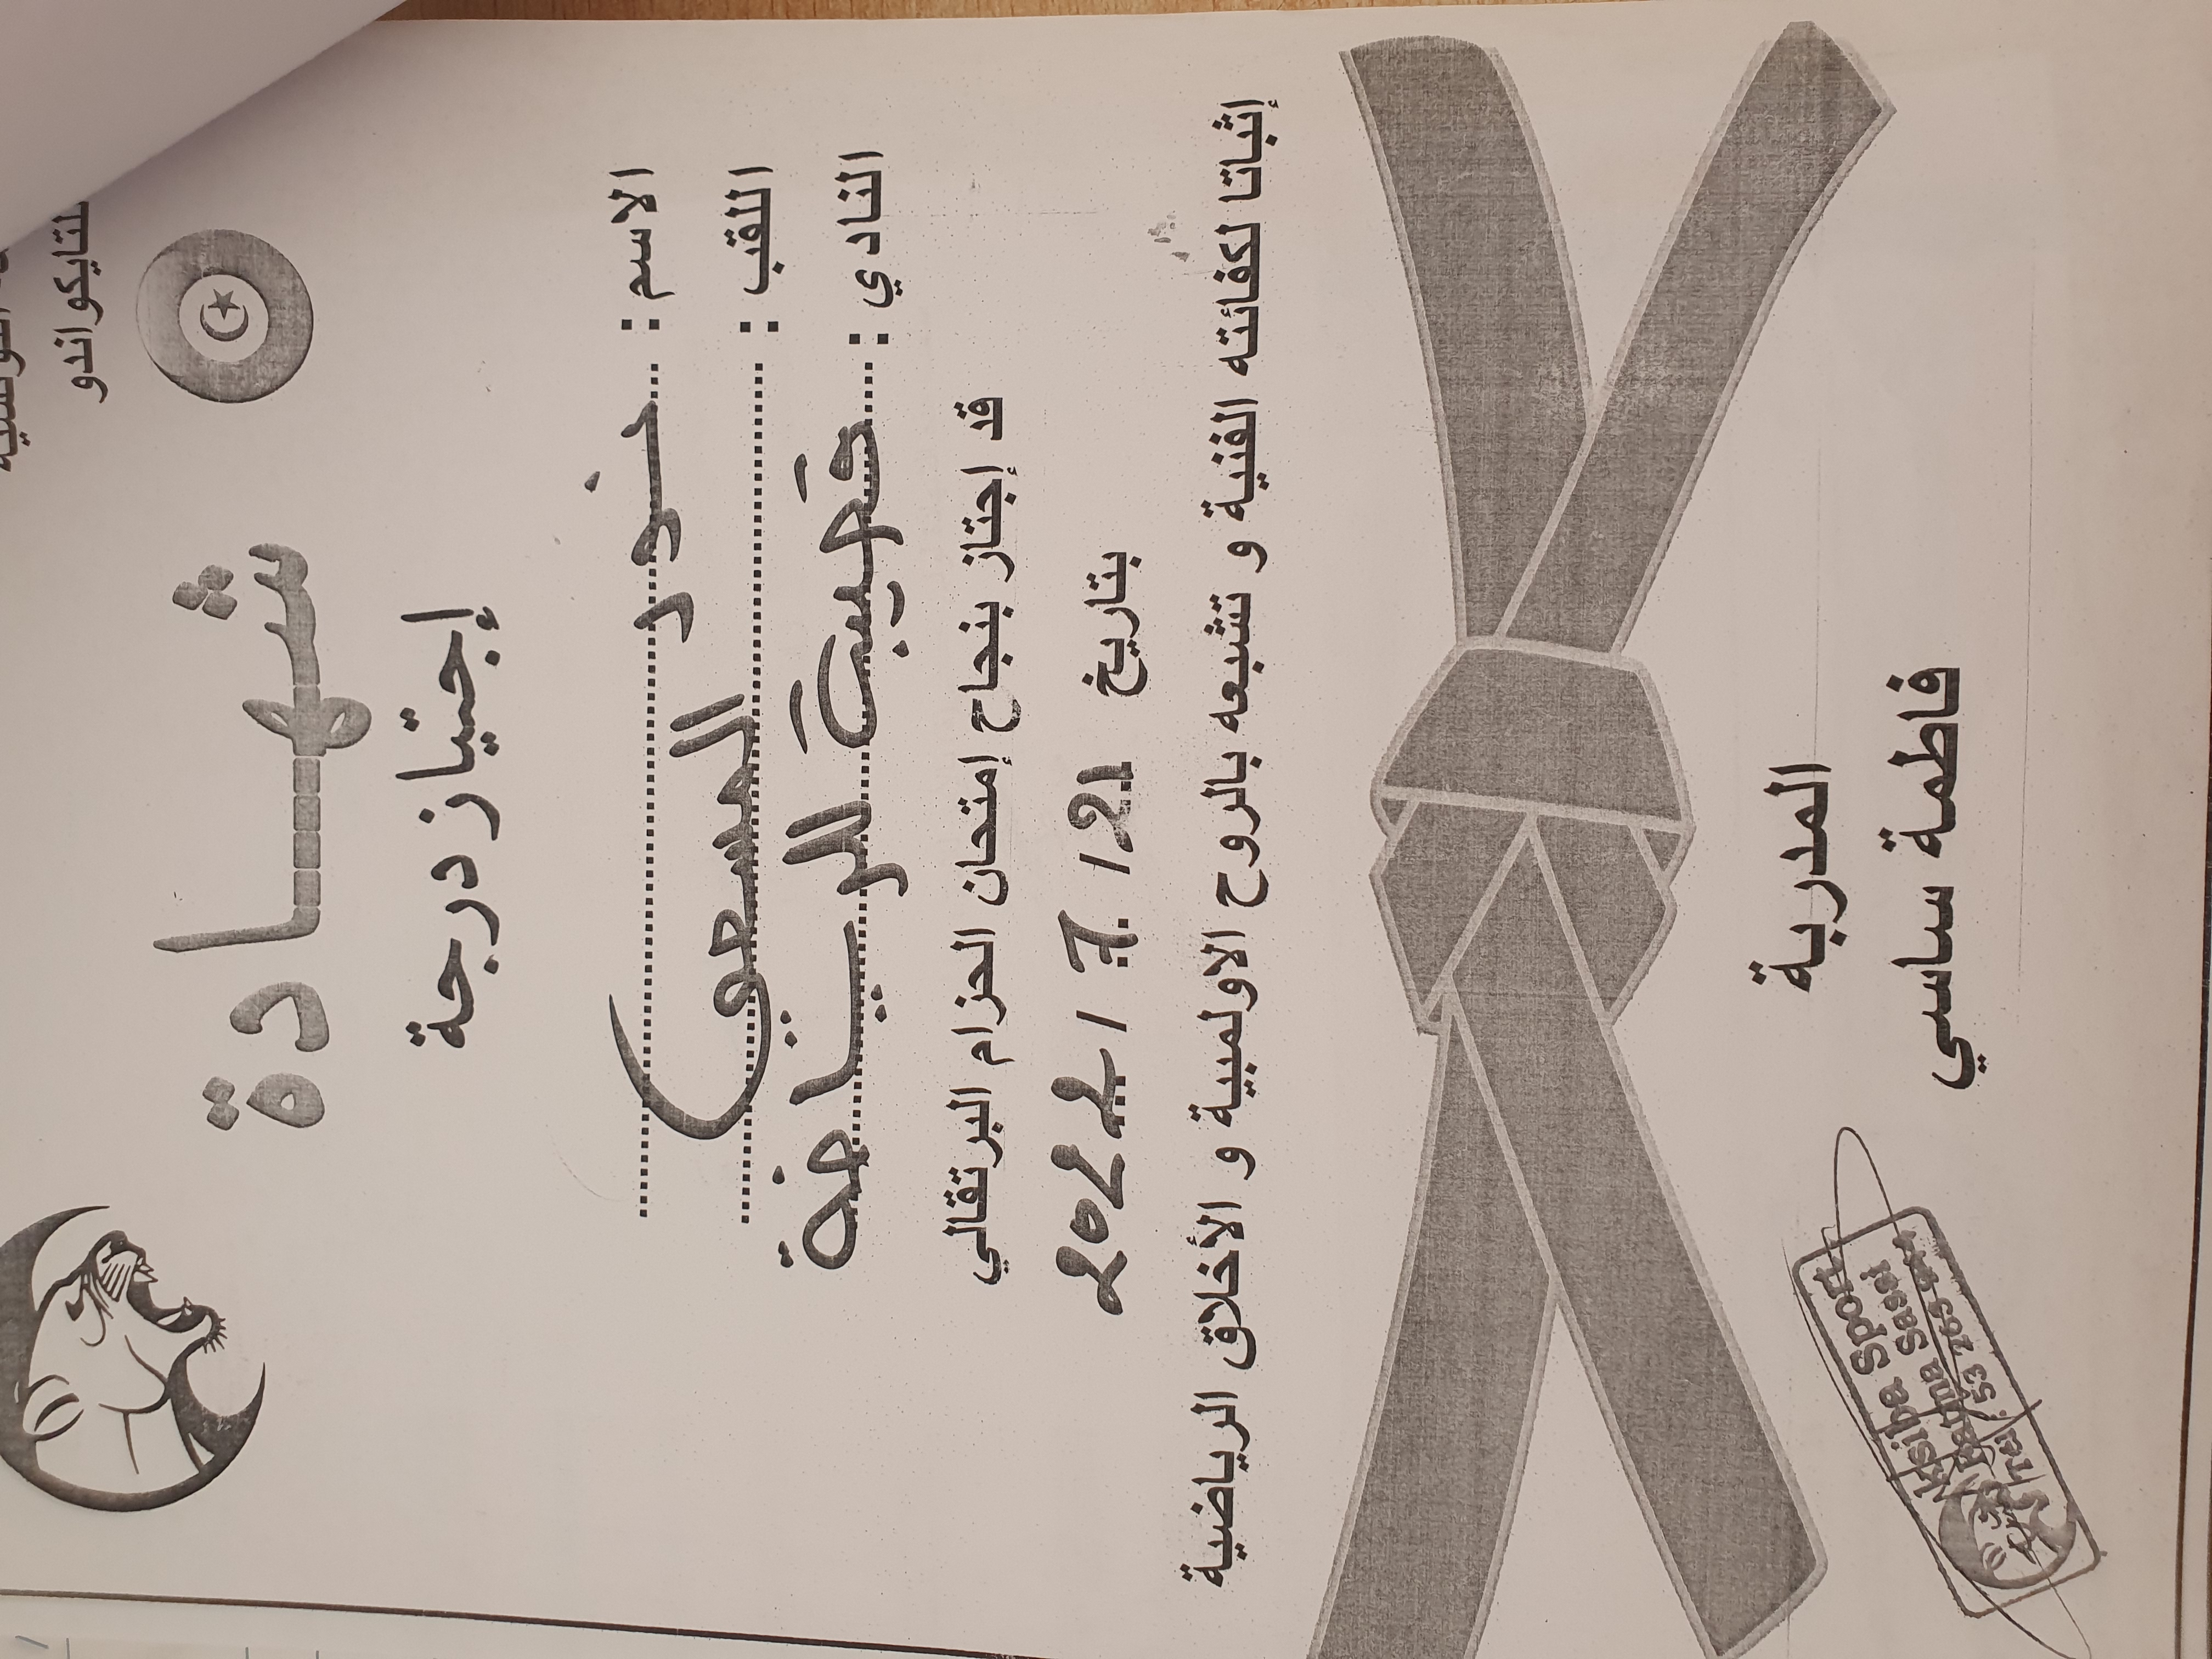 التونسية
للتايكواندو
شهـــادة
إجتياز درجة
الاسم : نور
اللقب :
النادي : الرياضة
قد إجتاز بنجاح إمتحان الحزام البرتقالي
بتاريخ 21 / 7 / 2022
إثباتا لكفائته الفنية و تشبعه بالروح الاولمبية و الأخلاق الرياضية
المدربة
فاطمة ساسي
Ksiba Sport
Sassi
Tel : 53